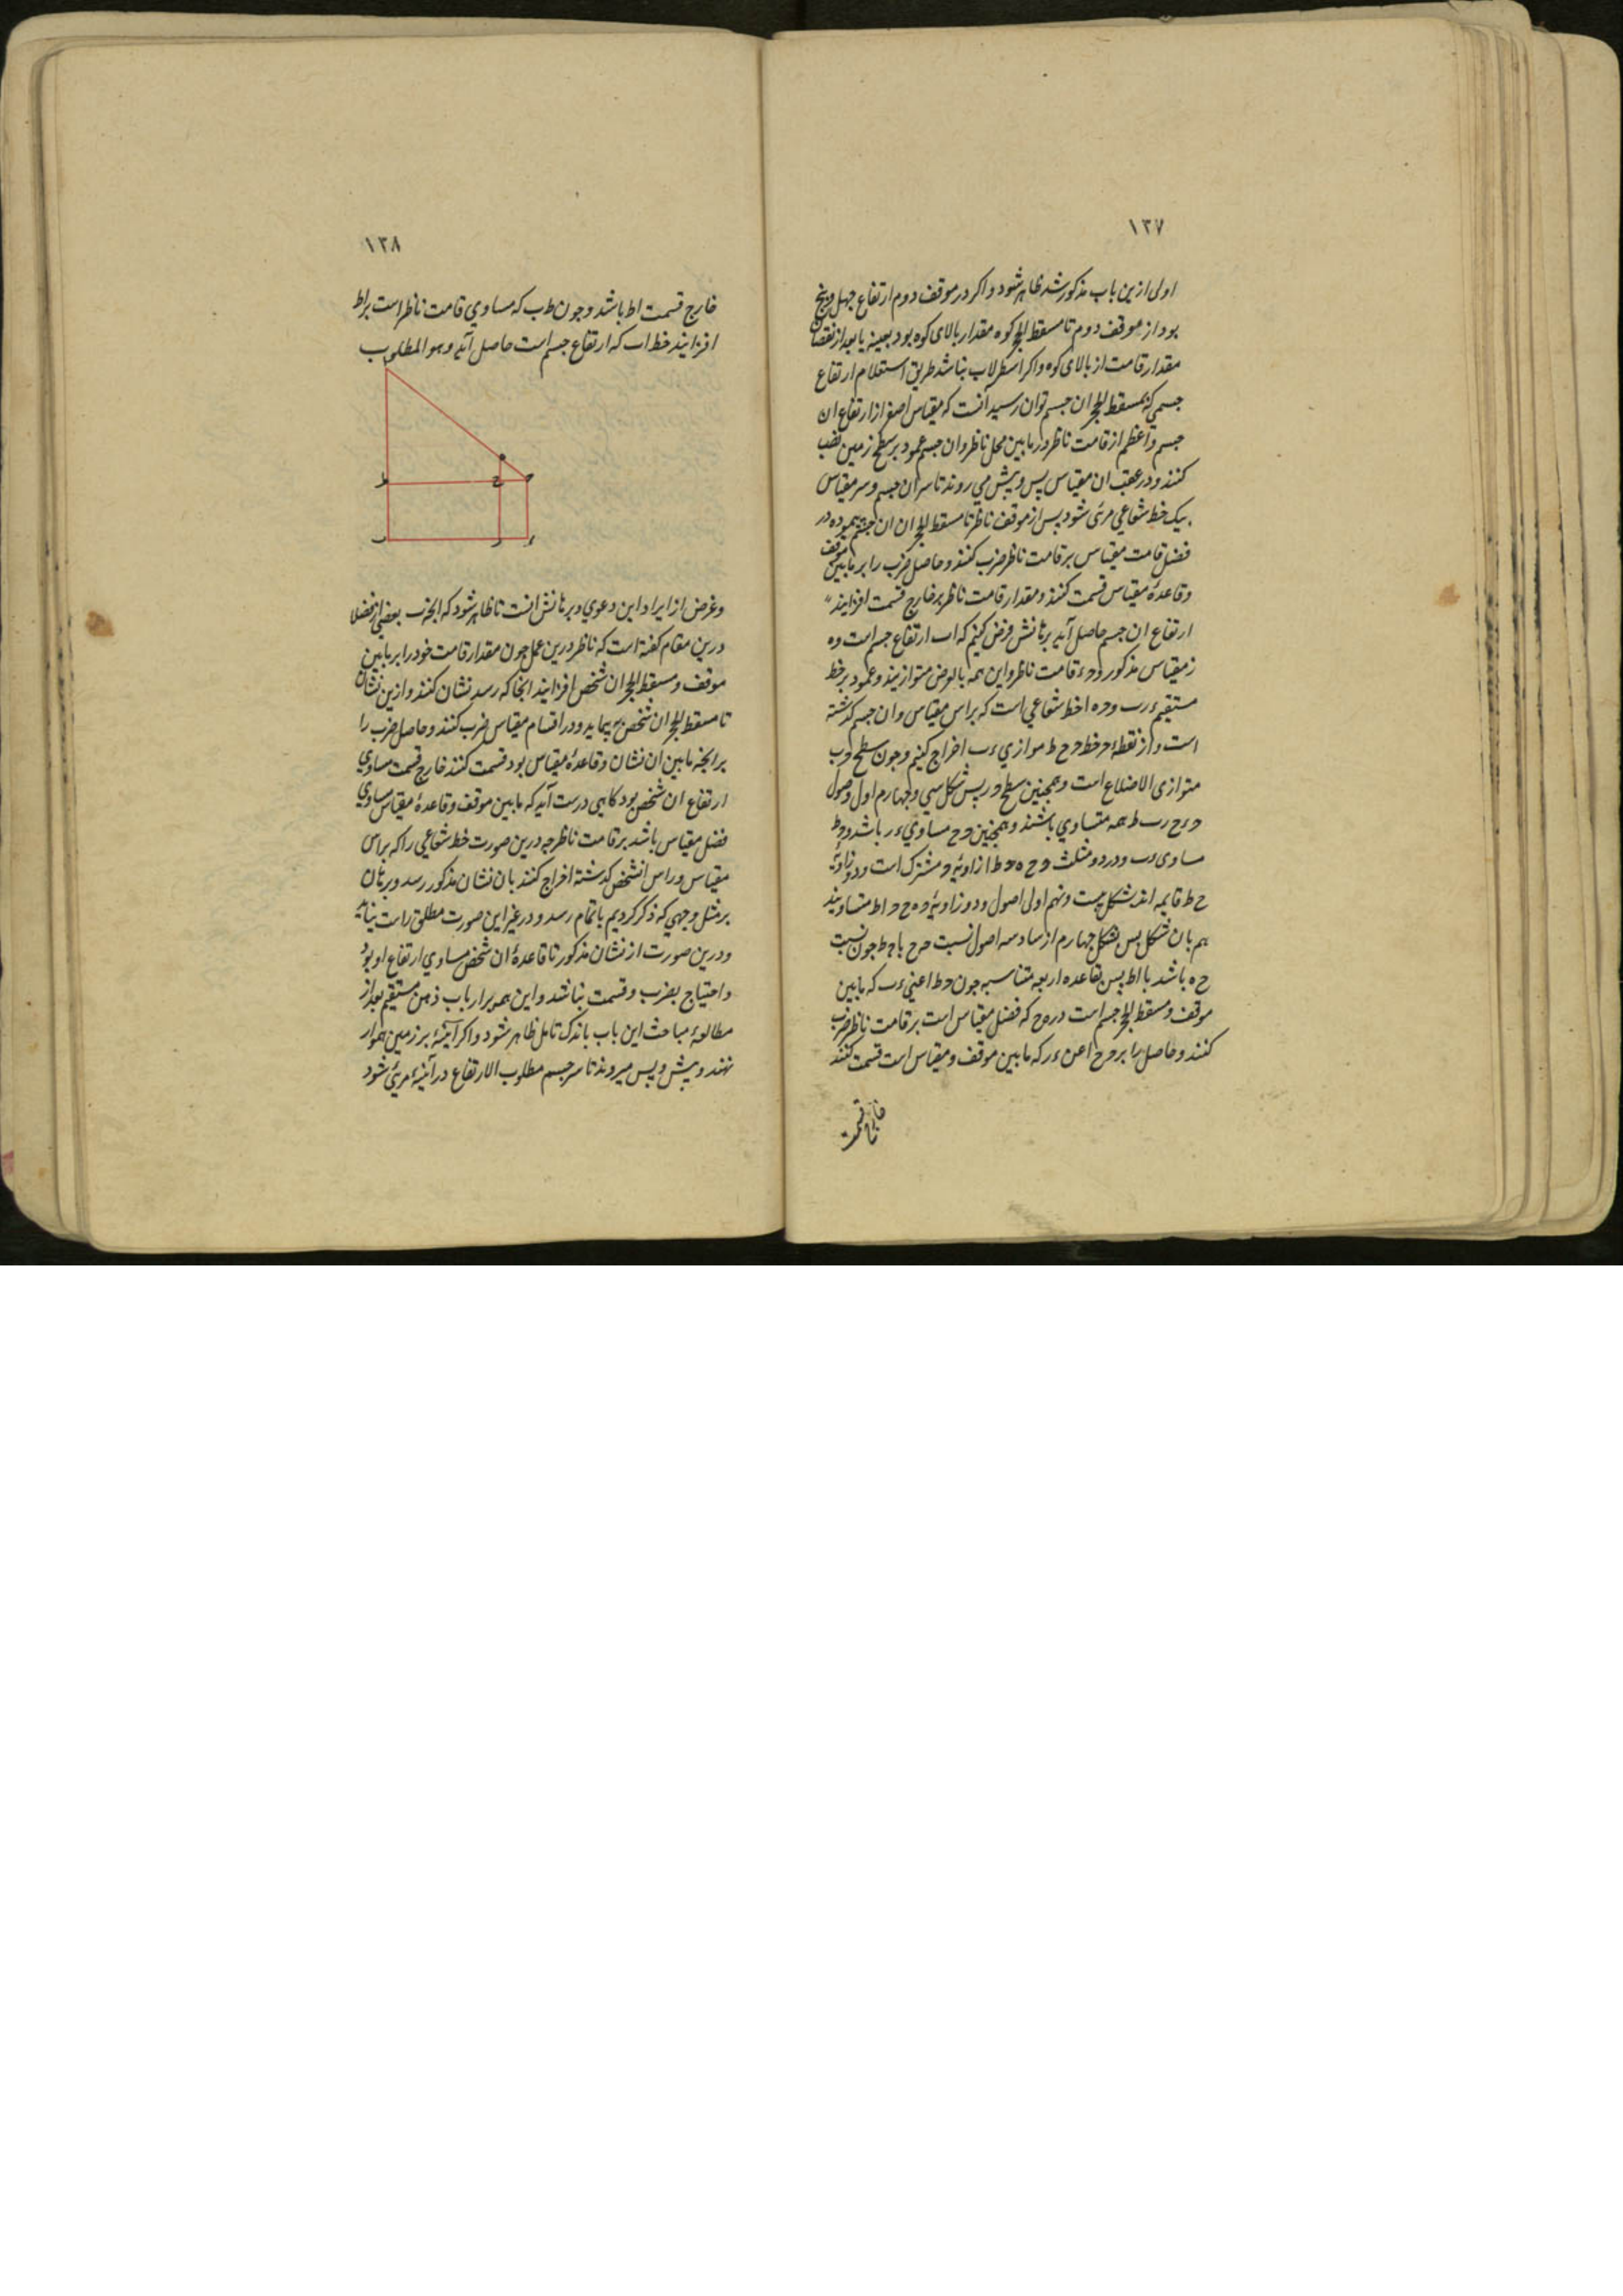 ۱۳۷
اولی ازین باب مذکور شد ظاهر شود و اکر در موقف دوم ارتفاع چهل و پنج
بود از موقف دوم تا مسقط الحجر کوه مقدار بالای کوه بود بعینه یا بعد از نقصان
مقدار قامت از بالای کوه و اکر اسطرلاب نباشد طریق استعلام ارتفاع
جسمی که بمسقط الحجر ان جسم توان رسید آنست که مقیاس اصغر از ارتفاع ان
جسم و اعظم از قامت ناظر در مابین محل ناظر و ان جسم عمود بر سطح زمین نصب
کنند و در عقب ان مقیاس پس و پیش می روند تا سر ان جسم و سر مقیاس
بیک خط شعاعی مرئی شود پس از موقف ناظر تا مسقط الحجر ان جسم پیموده در
فضل قامت مقیاس بر قامت ناظر ضرب کنند و حاصل ضرب را بر مابین موقف
و قاعدۀ مقیاس قسمت کنند و مقدار قامت ناظر بر خارج قسمت افزایند
ارتفاع ان جسم حاصل آید برهانش فرض کنیم که اب ارتفاع جسم است و ه
ز مقیاس مذکور و حء قامت ناظر و این همه بالفرض متوازیند و عمود بر خط
مستقیم ء ر ب و ح ه ا خط شعاعی است که براس مقیاس و ان جسم کذشته
است و از نقطۀ ح خط ح ح ط موازی ء ب اخراج کنیم و چون سطح ح ب
متوازی الاضلاع است و همچنین سطح ح ر پس شکل سی و چهارم اول اصول
ح ء ح ر ب ط همه متساوی باشند و همچنین ح ح مساوی ء ر باشد و ح ط
مساوی ء ب و در دو مثلث ح ح ه ح ط ا زاویۀ ح مشترک است و دو زاویۀ
ح ط قایمه اند شکل بیست و نهم اولی اصول و دو زاویۀ ح ه ح ح ا ط متساویند
هم بان شکل پس بشکل چهارم از سادسه اصول نسبت ح ح با ح ط چون نسبت
ح ه باشد با ا ط پس بقاعده اربعه متناسبه چون ح ط اعنی ء ب که مابین
موقف و مسقط الحجر جسم است در ه ح که فضل مقیاس است بر قامت ناظر ضرب
کنند و حاصل را بر ح ح اعنی ء ر که مابین موقف و مقیاس است قسمت کنند
۱۳۸
خارج قسمت اط باشد و چون ط ب که مساوی قامت ناظر است بر اط
افزایند خط اب که ارتفاع جسم است حاصل آید و هو المطلوب
ا
ه
ط ح ح
ب ر ء
و غرض از ایراد این دعوی و برهانش انست تا ظاهر شود که انچه بعضی از فضلا
درین مقام کفته است که ناظر درین عمل چون مقدار قامت خود را بر مابین
موقف و مسقط الحجر ان شخص افزایند انجا که رسد نشان کنند و ازین نشان
تا مسقط الحجر ان شخص بپیماید و در اقسام مقیاس ضرب کنند و حاصل ضرب را
بر انچه مابین ان نشان و قاعدۀ مقیاس بود قسمت کنند خارج قسمت مساوی
ارتفاع ان شخص بود کاهی درست آید که مابین موقف و قاعدۀ مقیاس مساوی
فضل مقیاس باشد بر قامت ناظر چه درین صورت خط شعاعی را که براس
مقیاس و راس انشخص کذشته اخراج کنند بان نشان مذکور رسد و برهان
بر مثل وجهی که ذکر کردیم باتمام رسد و در غیر این صورت مطلق راست نیاید
و درین صورت از نشان مذکور تا قاعدۀ ان شخص مساوی ارتفاع او بود
و احتیاج بضرب و قسمت نباشد و این همه بر ارباب ذهن مستقیم بعد از
مطالعۀ مباحث این باب باندک تامل ظاهر شود و اکر آینۀ بر زمین هموار
نهند و پیش و پس میروند تا سر جسم مطلوب الارتفاع در آینه مرئی شود